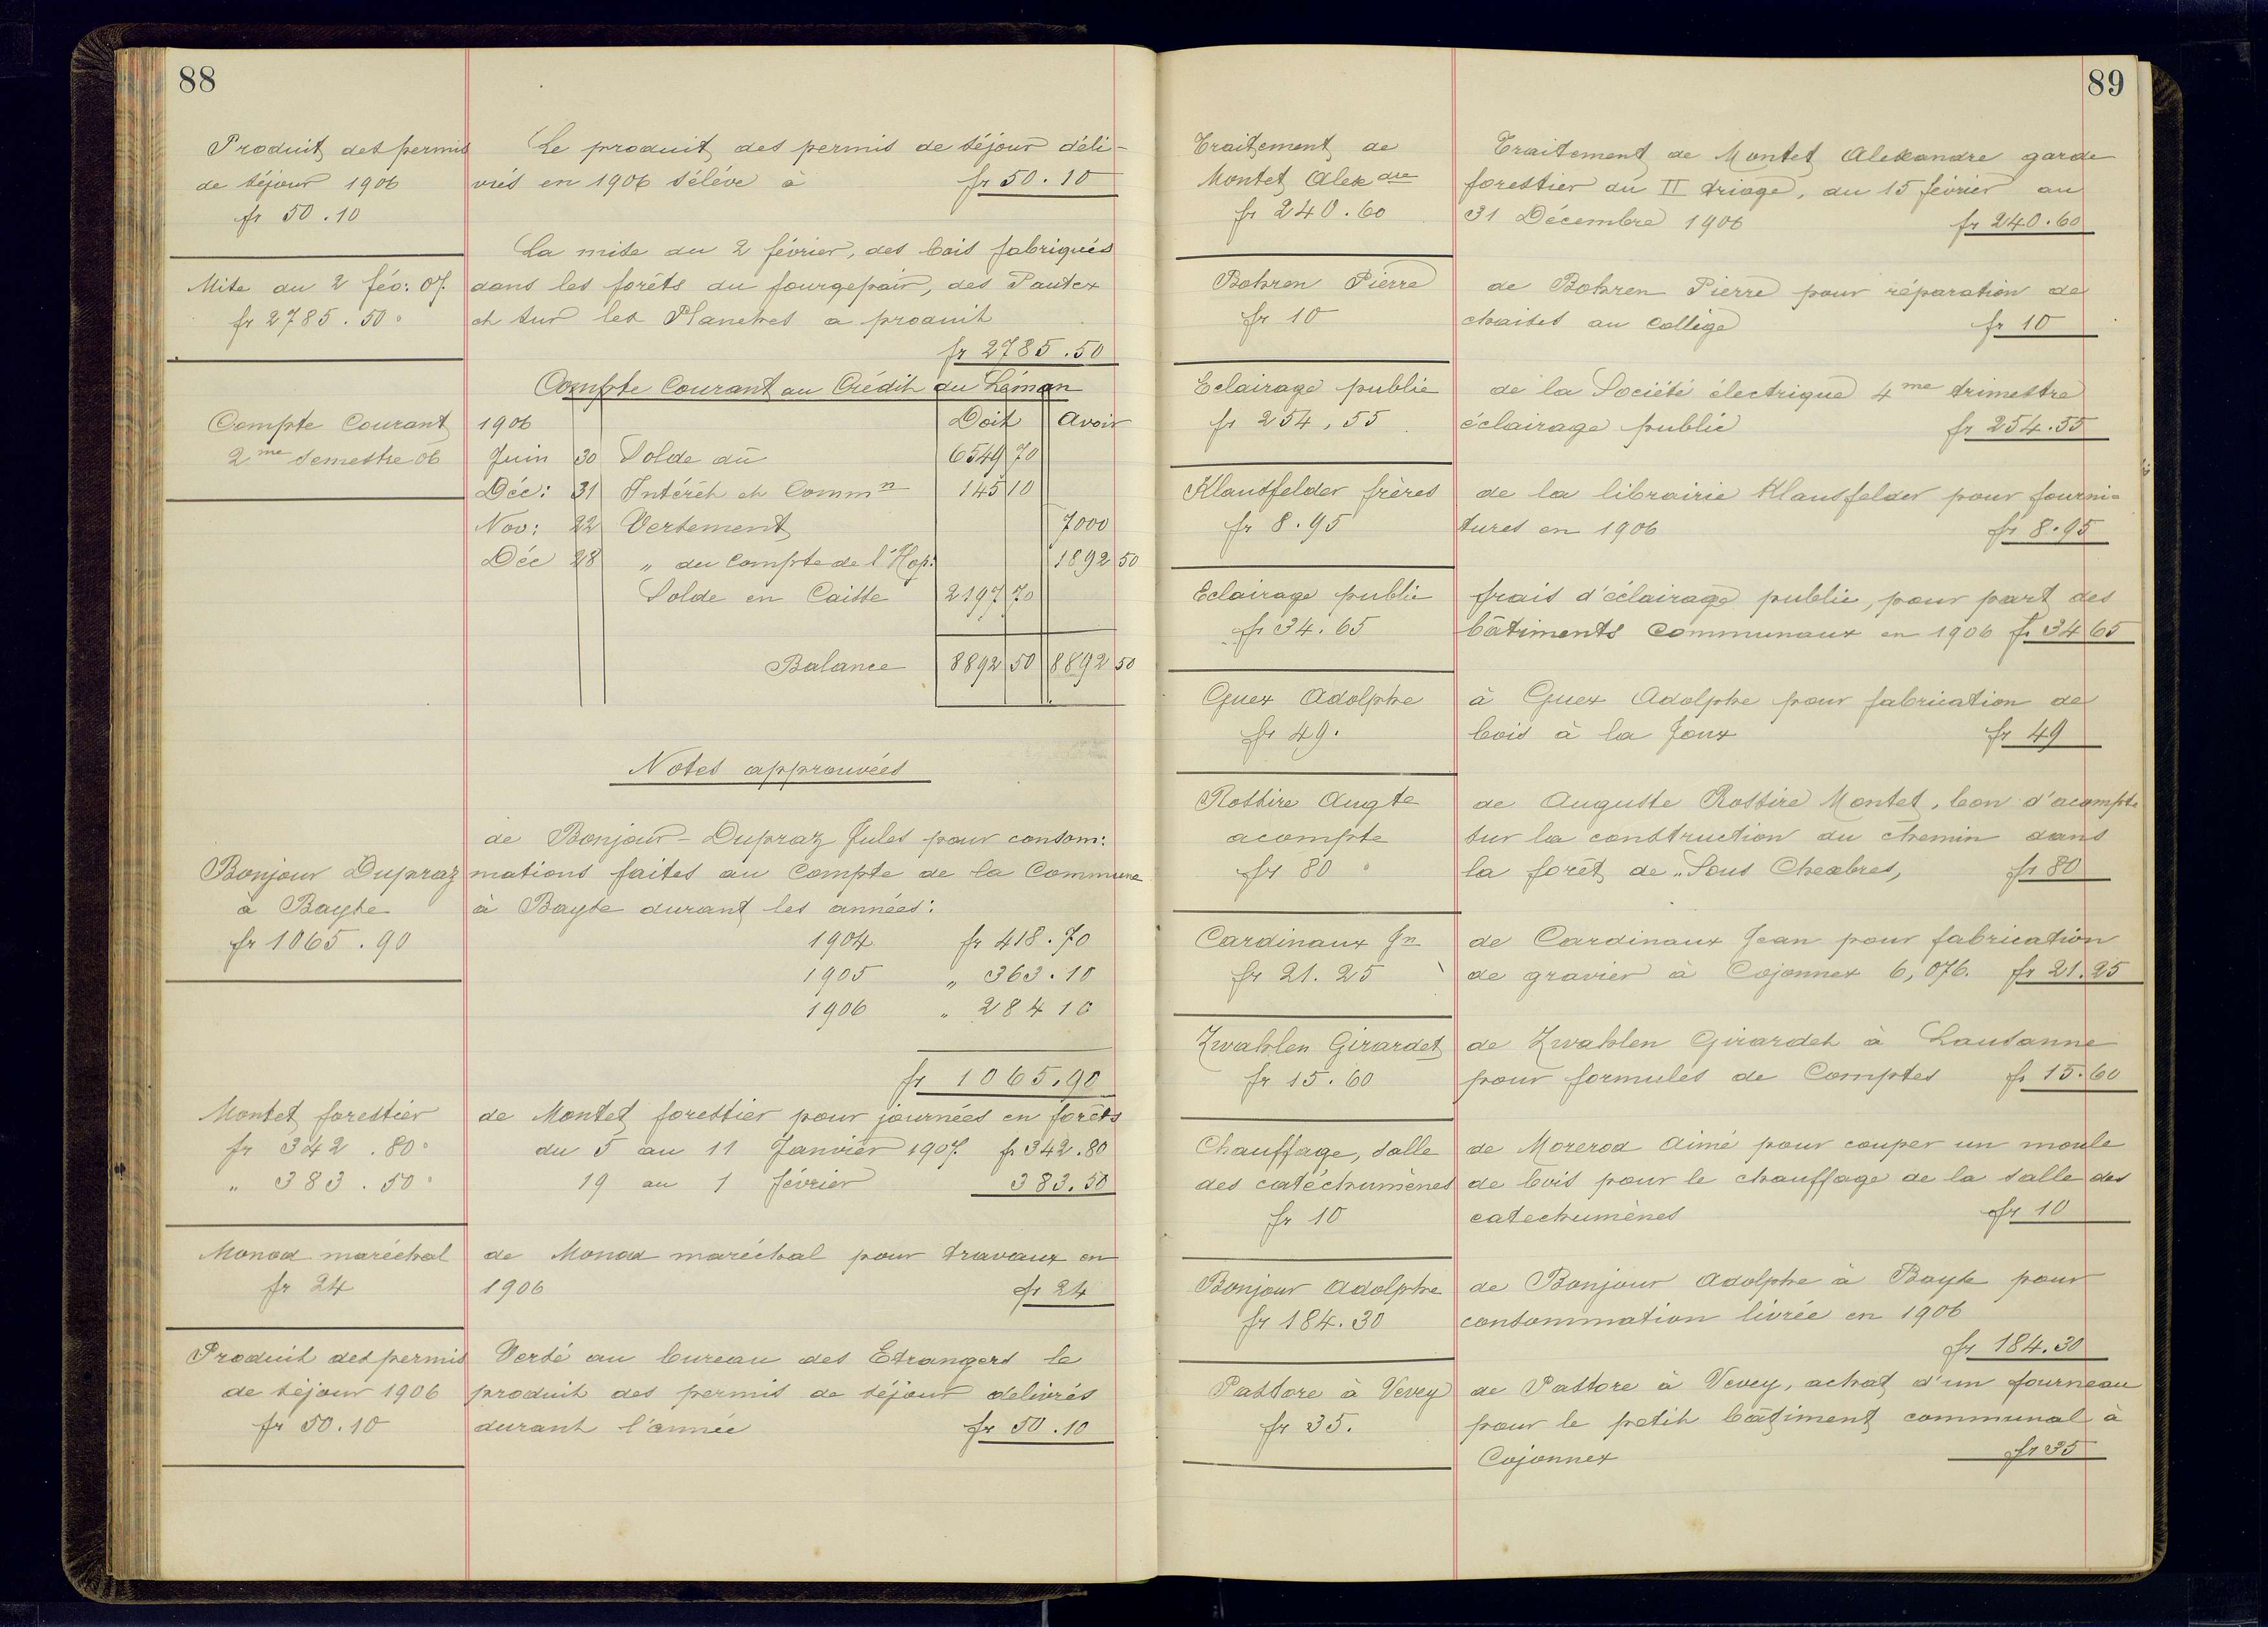 88
Produit des permis
de séjour 1906
fr 50.10
Le produit des permis de séjour déli-
vrés en 1906 s'élève à fr 50.10
Mise du 2 fév: 07.
fr 2785.50
La mise du 2 février, des bois fabriqués
dans les forêts du fourgepair, des Pautex
et sur les Planches a produit
fr 2785.50
Compte Courant
2me Semestre 06
Compte Courant au Crédit du Léman
1906 Doit Avoir
Juin 30 Solde dû 6549 70
Déc: 31 Intérêt et Commn 145 10
Nov: 22 Versement 7000
Déc 28 " du Compte de l'Hop: 1892 50
Solde en Caisse 2197 70
Balance 8892 50 8892 50
Notes approuvées
Bonjour Dupraz
à Bayse
fr 1065.90
de Bonjour-Dupraz Jules pour consom:
mations faites au Compte de la Commune
à Bayse durant les années:
1904 fr 418.70
1905 " 363.10
1906 " 284 10
fr 1065.90
Montet forestier
fr 342.80
" 383.50
de Montet forestier pour journées en forêts
du 5 au 11 Janvier 1907. fr 342.80
19 au 1 février 383.50
Monod maréchal
fr 24
de Monod maréchal pour travaux en
1906 fr 24
Produit des permis
de séjour 1906
fr 50.10
Versé au bureau des Etrangers le
produit des permis de séjour delivrés
durant l'année fr 50.10
89
Traitement de
Montet Alexdre
fr 240.60
Traitement de Montet Alexandre garde
forestier du II triage, du 15 février au
31 Décembre 1906 fr 240.60
Bohren Pierre
fr 10
de Bohren Pierre pour réparation de
chaises au collège fr 10
Eclairage public
fr 254,55
de la Société électrique 4me trimestre
éclairage public fr 254.55
Klausfelder frères
fr 8.95
de la librairie Klausfelder pour fourni-
tures en 1906 fr 8.95
Eclairage public
fr 34.65
frais d'éclairage public, pour part des
bâtiments Communaux en 1906 fr 34 65
Guex Adolphe
fr 49.
à Guex Adolphe pour fabrication de
bois à la Joux fr 49
Rossire Augte
acompte
fr 80
de Auguste Rossire Montet, bon d'acompte
sur la construction du chemin dans
la forêt de „Sous Chexbres„ fr 80
Cardinaux Jn
fr 21.25
de Cardinaux Jean pour fabrication
de gravier à Cojonnex 6,076. fr 21.25
Zwahlen Girardet
fr 15.60
de Zwahlen Girardet à Lausanne
pour formules de Comptes fr 15.60
Chauffage, salle
des catéchumènes
fr 10
de Morerod Aimé pour couper un moule
de bois pour le chauffage de la salle des
catechumènes fr 10
Bonjour Adolphe
fr 184.30
de Bonjour Adolphe à Bayse pour
consommation livrée en 1906
fr 184.30
Pastore à Vevey
fr 35.
de Pastore à Vevey, achat d'un fourneau
pour le petit bâtiment communal à
Cojonnex fr 35